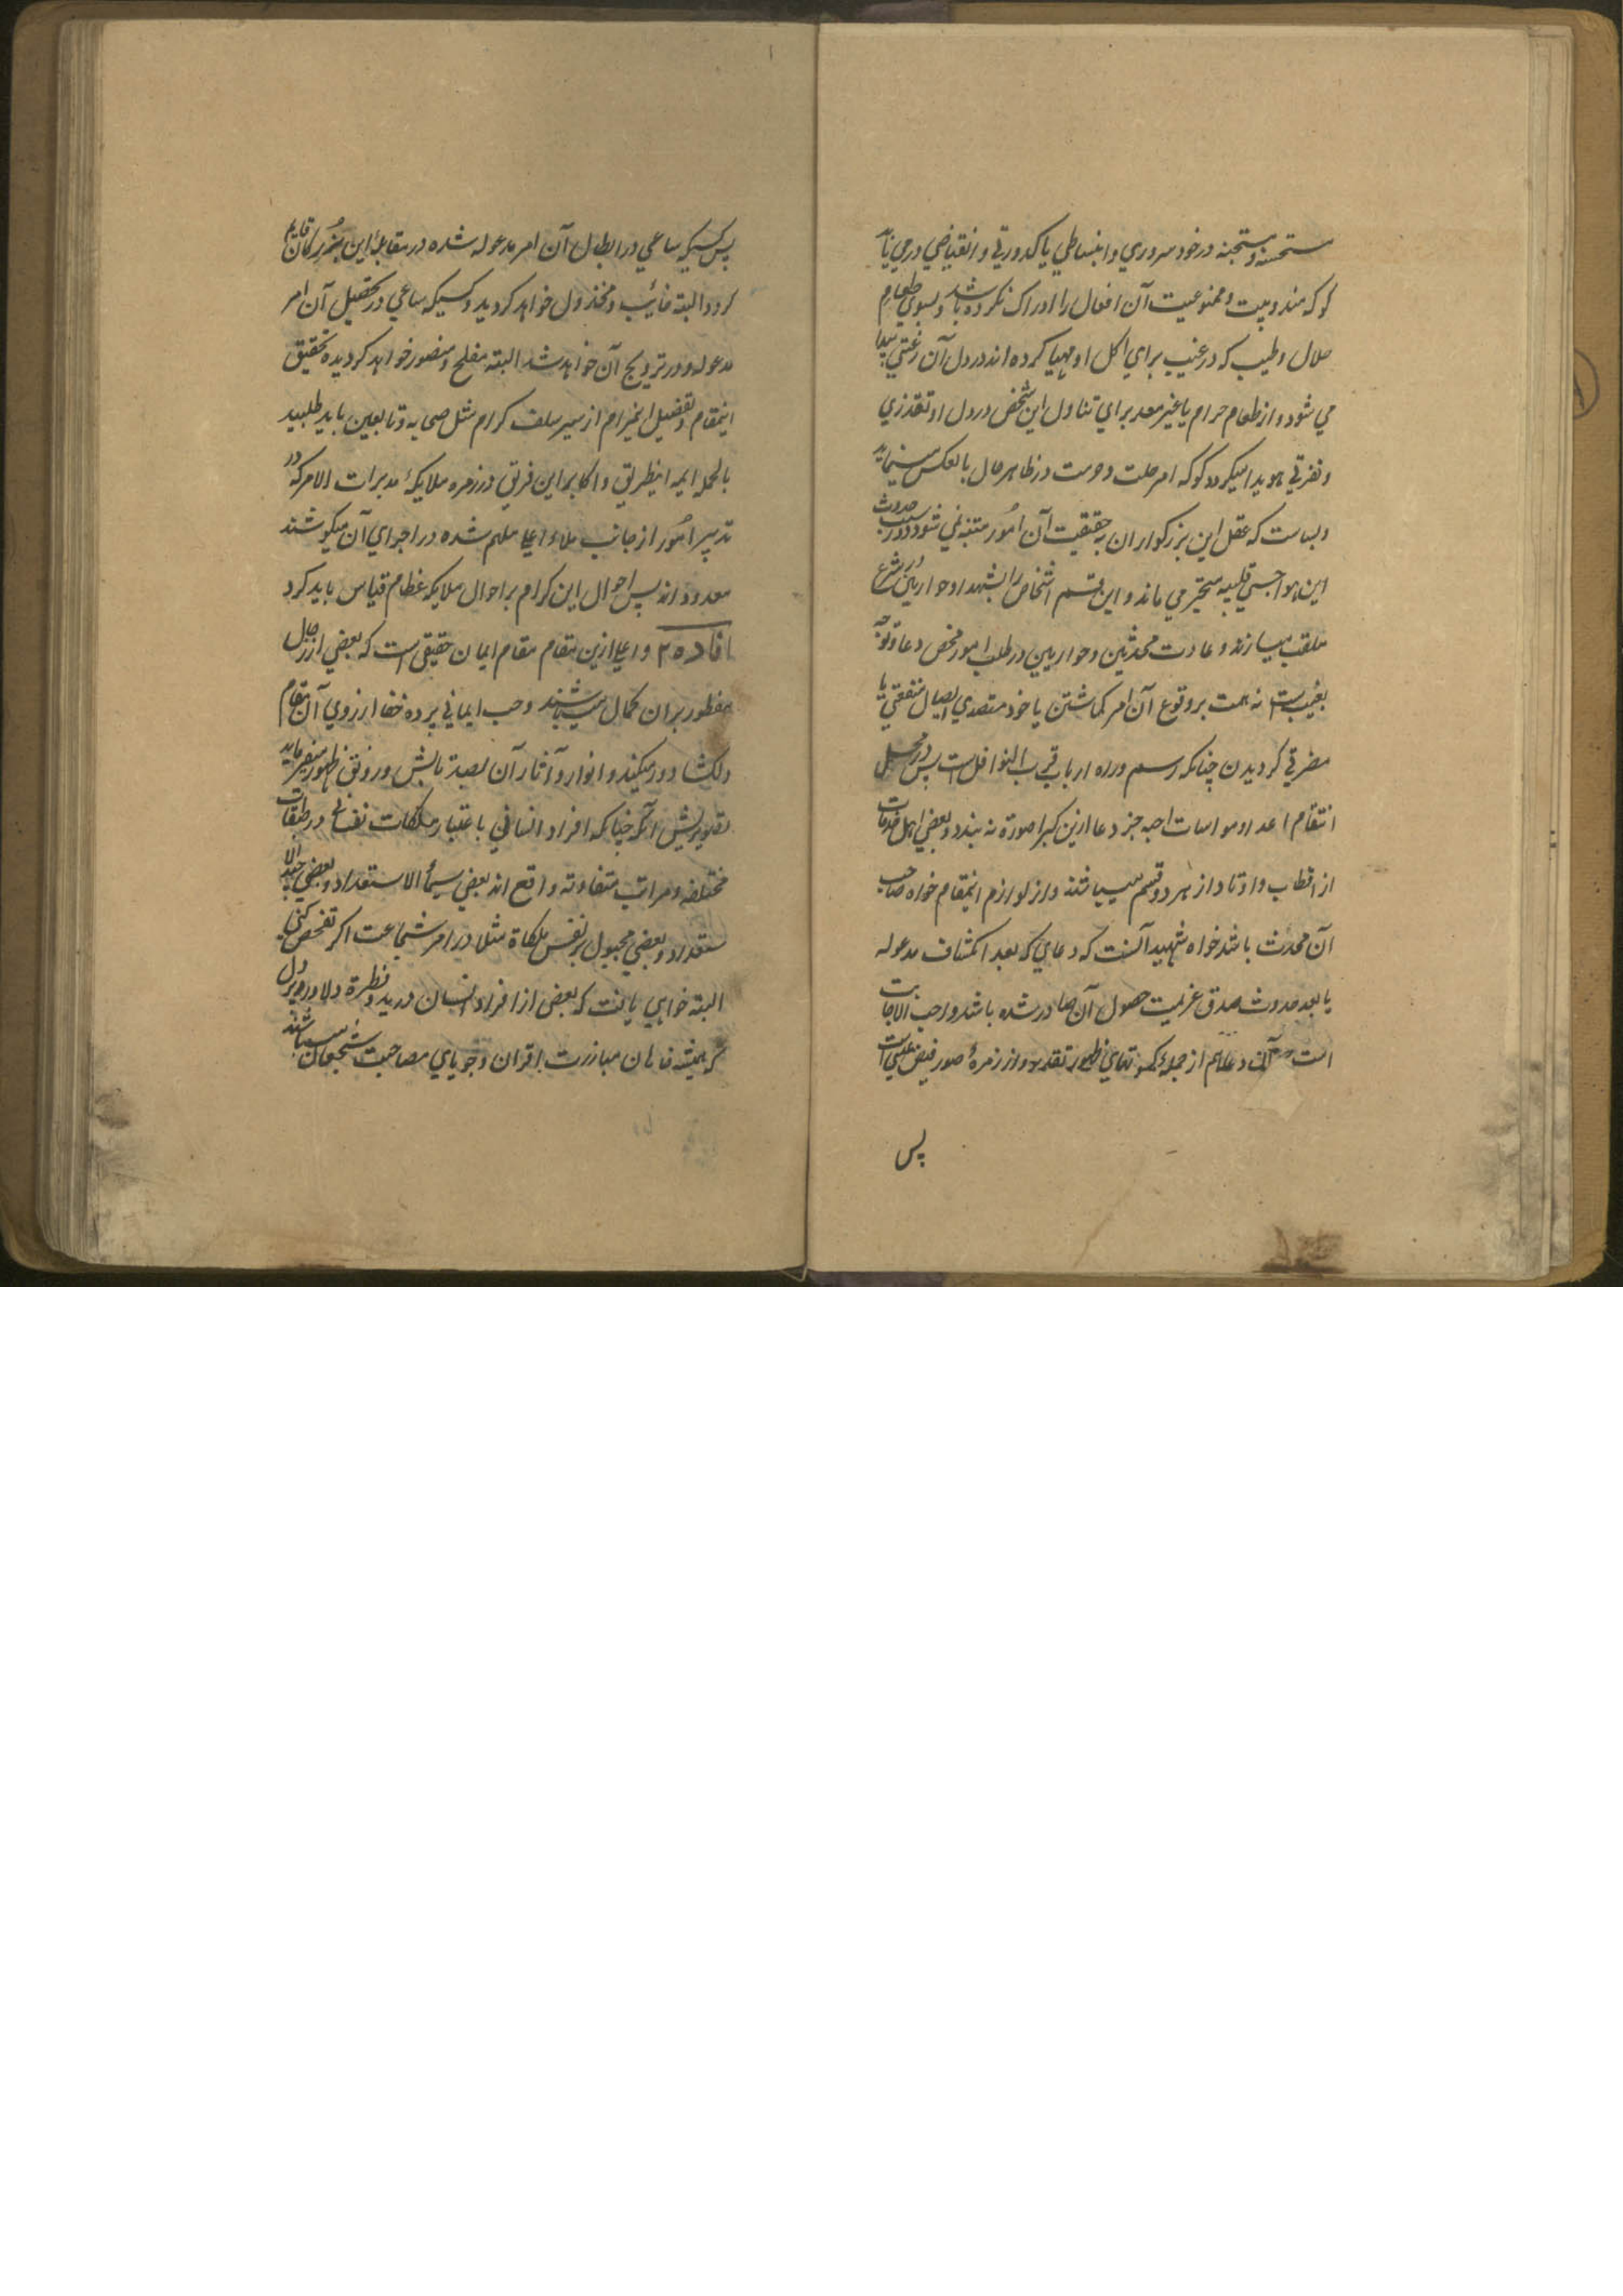 مستحسنه و مستهجنه در خود سروري و انبساطي يا كدورتي و انقباضي در مي يابد
كو كه مندوبيت و ممنوعيت آن افعال را ادراك نكرده باشد و بسوي طعام
حلال و طيب كه در غيب براي اكل او مهيا كرده اند در دل آن رغبتي پيدا
مي شود و از طعام حرام يا غير معد براي تناول اين شخص در دل او تقذري
و نفرتي هويدا ميكردد كو كه امر حلت و حرمت در ظاهر حال بالعكس مينمايد
و بساست كه عقل اين بزركواران به حقيقت آن امور متنبه نمي شود و در سبب حدوث
اين هواجس قلبيه متحير مي ماند و اين قسم اشخاص را بشهدا و حواريين در شرع
ملقب ميسازند و عادت محدثين و حواريين در طلب امور محض دعا و توجه
بغيب است نه همت بر وقوع آن امر كماشتن يا خود متصدي ايصال منفعتي يا
مضرتي كرديدن چنانكه رسم و راه ارباب قرب النوافل است پس در محل
انتقام اعدا و مواسات احبه جز دعا ازين كبرا صورة نه بندد و بعضي اهل خدمات
از اقطاب و اوتاد از هر دو قسم ميباشند و از لوازم اينمقام خواه صاحب
آن محدث باشد خواه شهيد آنست كه دعاي كه بعد انكشاف مدعو له
يا بعد حدوث صدق عزيمت حصول آن صادر شده باشد واجب الاجابت
است آن دعا هم از جمله كمونهاي ظهور تقدير و از زمرهٔ صور فيض غيبي است
پس
پس كسيكه ساعي در ابطال آن امر مدعو له شده در مقابلهٔ اين بزركان قايم
كردد البته خائب و مخذول خواهد كرديد و كسيكه ساعي در تحصيل آن امر
مدعو له و در ترويج آن خواهد شد البته مفلح و منصور خواهد كرديد و تحقيق
اينمقام و تفصيل اينمرام از سير سلف كرام مثل صحابه و تابعين بايد طلبيد
بالجمله ايمه اينطريق و اكابر اين فريق در زمره ملايكهٔ مدبرات الامر كه در
تدبير امور از جانب ملاء اعلي ملهم شده در اجراي آن ميكوشند
معدود اند پس احوال اين كرام بر احوال ملايكه عظام قياس بايد كرد
افاده ۲ و اعلي ازين مقام مقام ايمان حقيقي است كه بعضي از رجال
مفطور بران كمال ميباشند و حب ايماني پرده خفا از روي آن مقام
دلكشا دور ميكند و انوار و آثار آن بصد تابش و رونق ظهور ميفرمايد
تقريرش آنكه چنانكه افراد انساني باعتبار ملكات نفساني در طبقات
مختلفه و مراتب متفاوته واقع اند بعضي سيئ الاستعداد و بعضي جيد الا
ستعداد و بعضي مجبول بر نفس ملكاة مثلا در امر شجاعت اكر تفحص كني
البته خواهي يافت كه بعضي از افراد انسان در بدو فطرة دلاور و پر دل
كه هميشه خاهان مبارزت اقران و جوياي مصاحبت شجعان ميباشند